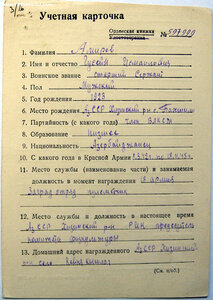 Учетная карточка
Орденская книжка
№ 507000
1. Фамилия Амиров
2. Имя и отчество Гусейн Исмаилович
3. Воинское звание старший сержант
4. Пол Мужской
5. Год рождения 1923
6. Место рождения Аз ССР Хизинский р-н с.
7. Партийность (с какого года) член ВЛКСМ
8. Образование низшее
9. Национальность Азербайджанец
10. С какого года в Красной Армии
11. Место службы (наименование части) и занимаемая
должность в момент награждения 18 армия
Заград отряд
12. Место службы и должность в настоящее время
Аз ССР Хизинский р-н РИК председатель
комитета
13. Домашний адрес награжденного Аз ССР Хизинский
р-н село
(См. н/об.)